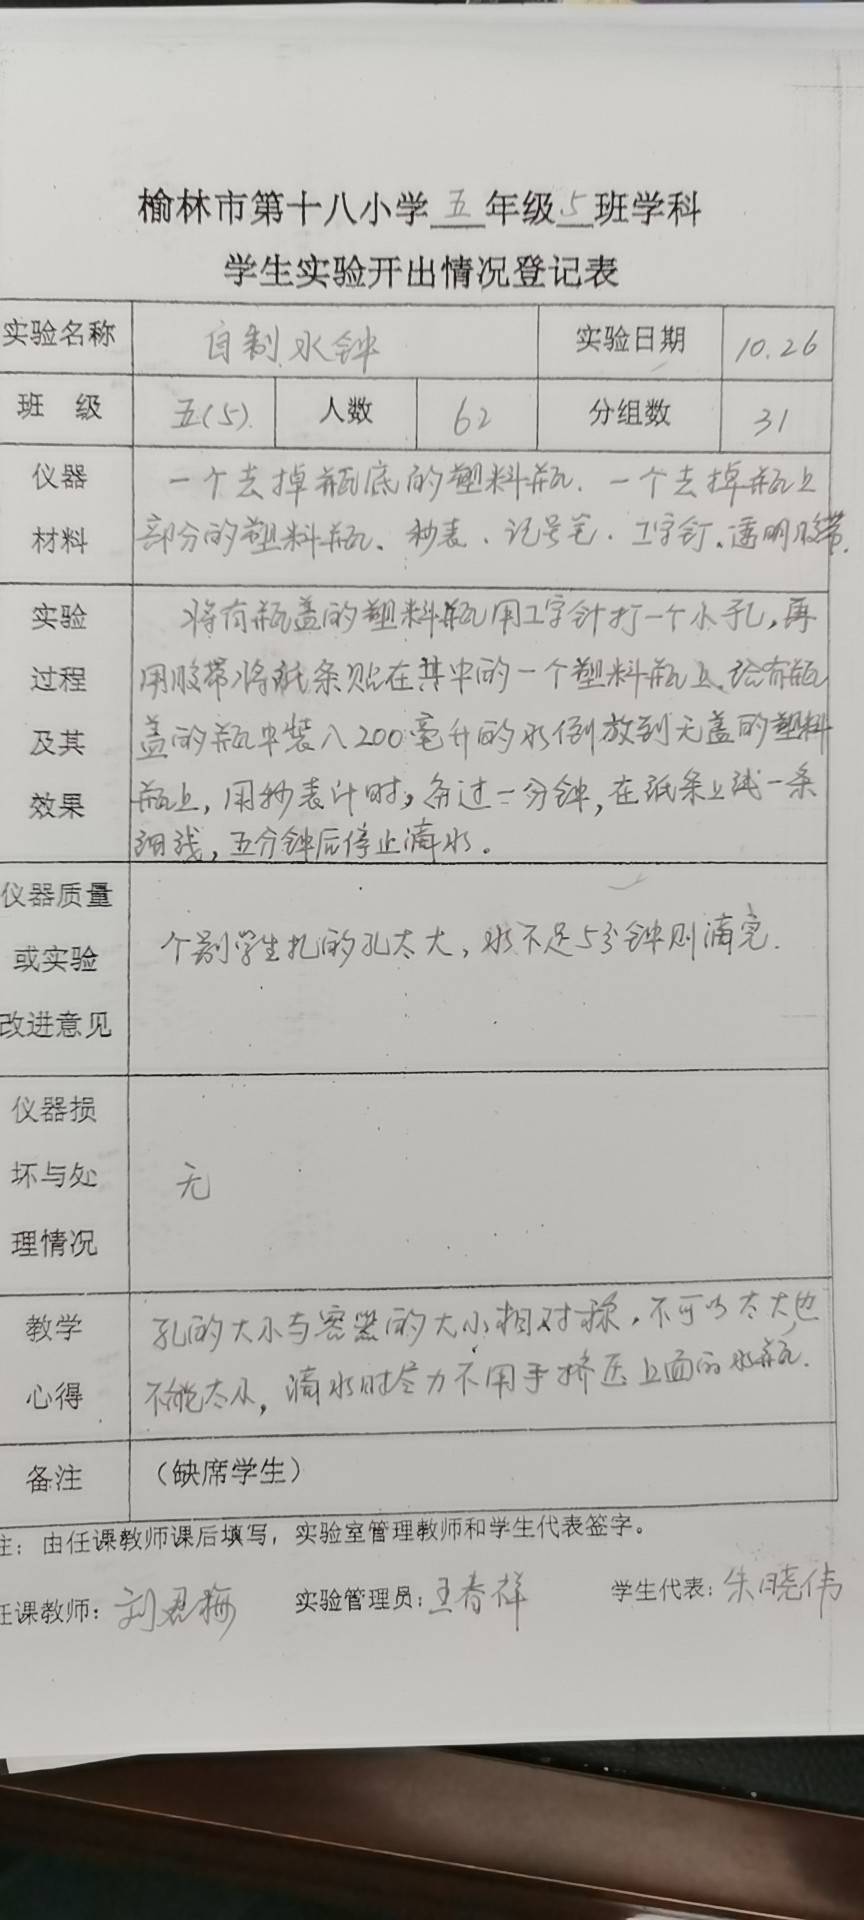 榆林市第十八小学五年级5班学科
学生实验开出情况登记表
实验名称 自制水钟 实验日期 10.26
班 级 五(5). 人数 62 分组数 31
仪器材料 一个去掉瓶底的塑料瓶.一个去掉瓶上
部分的塑料瓶、秒表、记号笔.工字钉.透明胶带.
实验过程及其效果 将有瓶盖的塑料瓶用工字针打一个小孔,再
用胶带将纸条贴在其中的一个塑料瓶上.给有瓶
盖的瓶中装入200毫升的水倒放到无盖的塑料
瓶上,用秒表计时,每过一分钟,在纸条上线一条
细线,五分钟后停止滴水。
仪器质量或实验改进意见 个别学生扎的孔太大,水不足5分钟则滴完.
仪器损坏与处理情况 无
教学心得 孔的大小与容器的大小相对称,不可以太大也
不能太小,滴水时尽力不用手挤压上面的水瓶.
备注 (缺席学生)
注:由任课教师课后填写,实验室管理教师和学生代表签字。
任课教师:刘君梅 实验管理员:王春祥 学生代表:朱晓伟